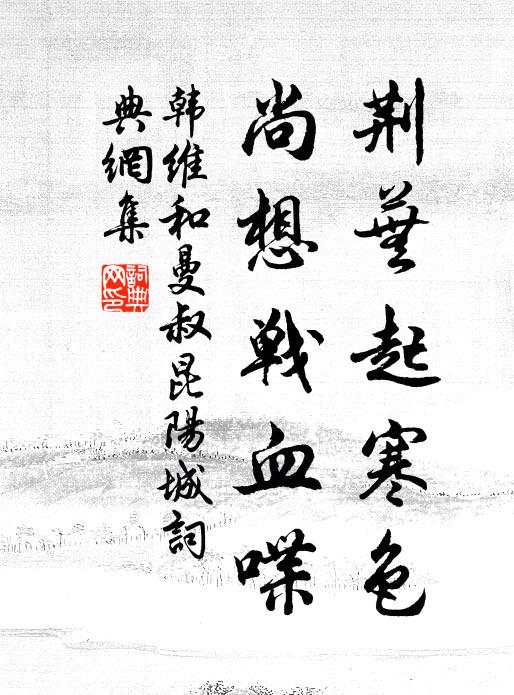 荆蕪起寒色
尚想戰血喋
韩維和曼叔昆陽城詞
典網集
詞典
网印